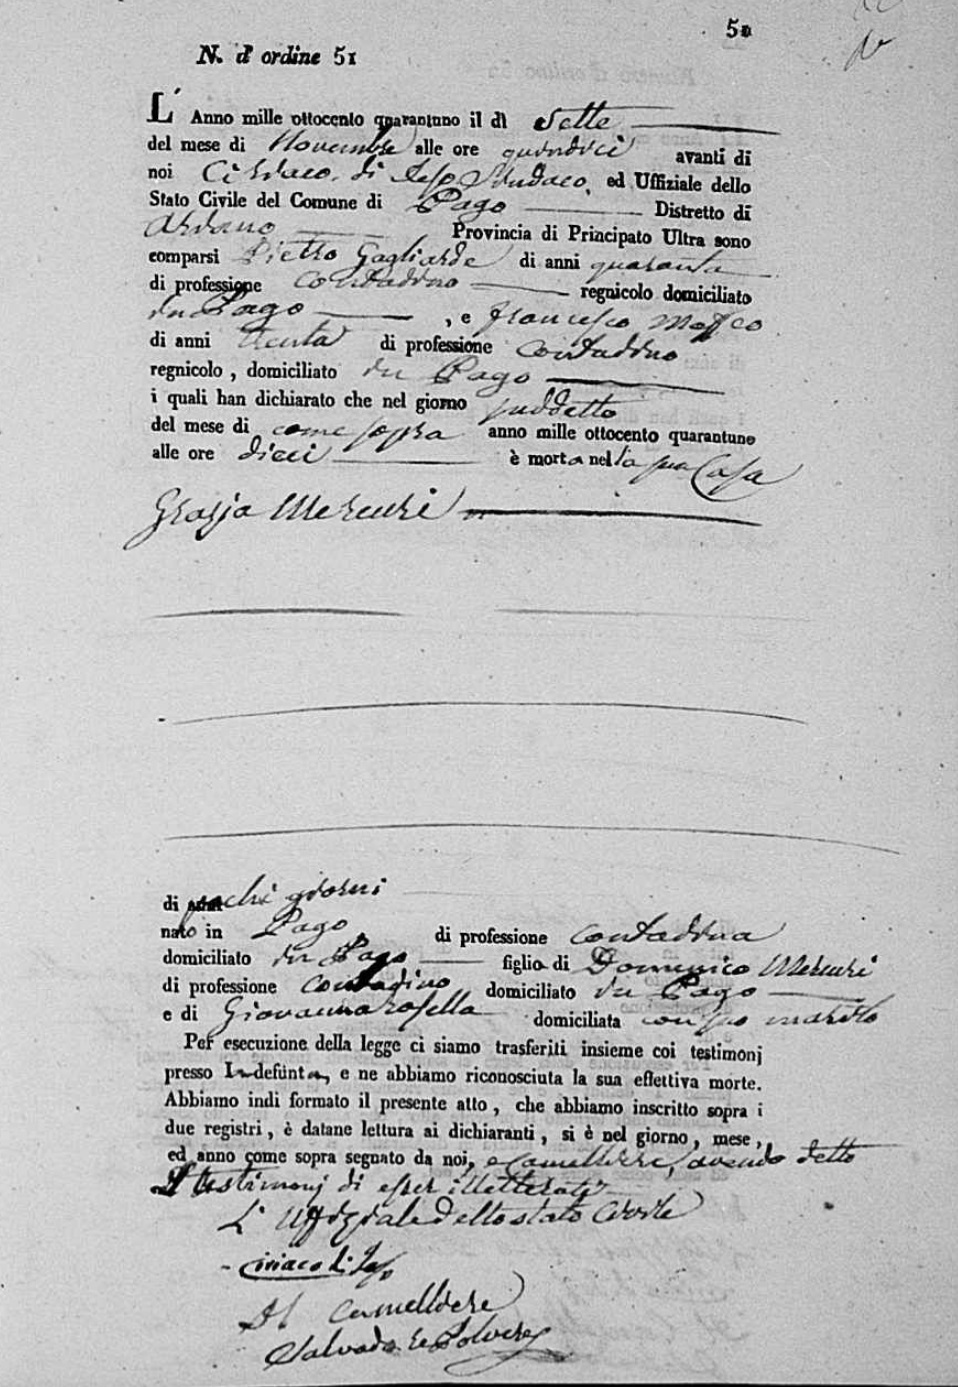 50
N. d' ordine 51
L' Anno mille ottocento quarantuno il dì Sette
del mese di Novembre alle ore quindici avanti di
noi Ciriaco di Ieso Sindaco, ed Uffiziale dello
Stato Civile del Comune di Pago Distretto di
Ariano Provincia di Principato Ultra sono
comparsi Pietro Gagliarde di anni quaranta
di professione Contadino regnicolo domiciliato
in Pago , e Francesco Maffeo
di anni trenta di professione Contadino
regnicolo , domiciliato in Pago
i quali han dichiarato che nel giorno suddetto
del mese di come sopra anno mille ottocento quarantuno
alle ore dieci è morta nella sua Casa
Grazia Mercuri
di anni pochi giorni
nato in Pago di professione Contadina
domiciliato in Pago figlia di Domenico Mercuri
di professione Contadino domiciliato in Pago
e di Giovanna rosella domiciliata con suo marito
Per esecuzione della legge ci siamo trasferiti insieme coi testimonj
presso la defunta, e ne abbiamo riconosciuta la sua effettiva morte.
Abbiamo indi formato il presente atto , che abbiamo inscritto sopra i
due registri , è datane lettura ai dichiaranti , si è nel giorno , mese ,
ed anno come sopra segnato da noi, e Cancelliere, avendo detto
I testimonj di esser illetterati
L' Uffiziale dello stato Civile
Ciriaco di Ieso
Il Cancelliere
Salvado re Polvere